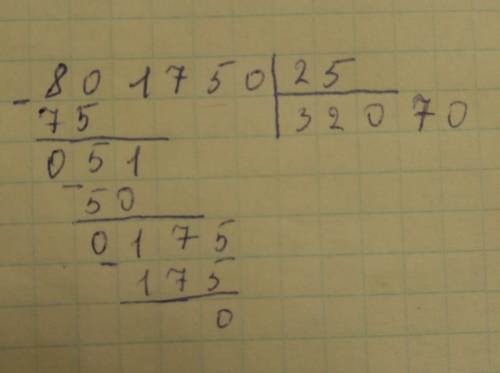 - 801750 | 25
75 32070
051
- 50
0175
- 175
0